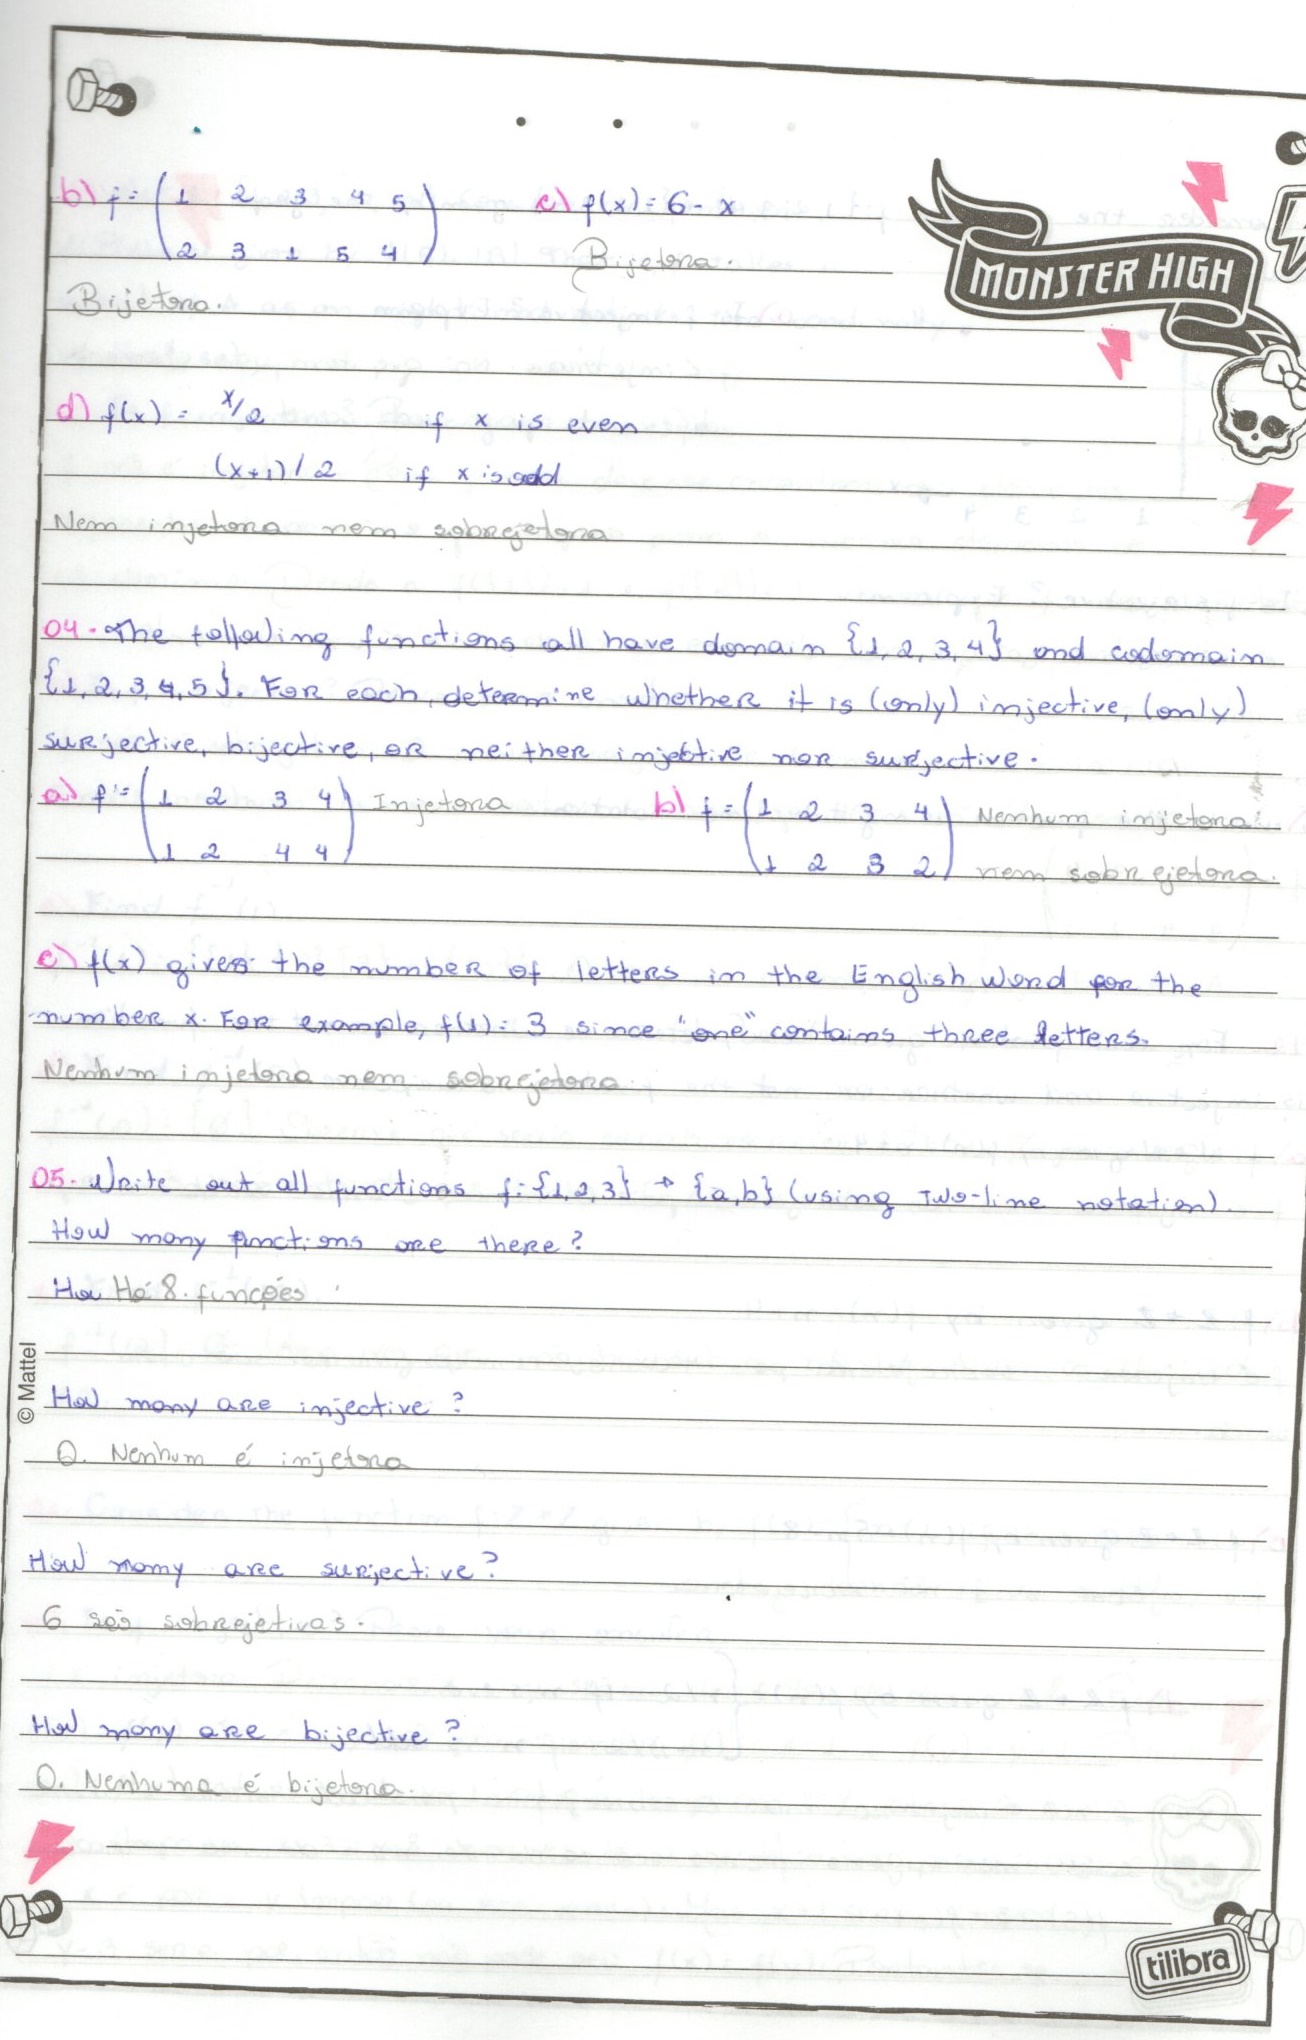 b) f = ( 1 2 3 4 5 ) c) f(x) = 6 - x
( 2 3 1 5 4 ) Bijetora.
Bijetora.
MONSTER HIGH
d) f(x) = x/2 if x is even
(x+1)/2 if x is odd
Nem injetora nem sobrejetora
04. The following functions all have domain {1, 2, 3, 4} and codomain
{1, 2, 3, 4, 5}. For each, determine whether it is (only) injective, (only)
surjective, bijective, or neither injective nor surjective.
a) f = ( 1 2 3 4 ) Injetora b) f = ( 1 2 3 4 ) Nenhum injetora
( 1 2 4 4 ) ( 1 2 3 2 ) nem sobrejetora.
c) f(x) gives the number of letters in the English word for the
number x. For example, f(1) = 3 since "one" contains three letters.
Nenhum injetora nem sobrejetora.
05. Write out all functions f: {1, 2, 3} → {a, b} (using two-line notation).
How many functions are there?
Há 8. funções
How many are injective?
0. Nenhum é injetora
How many are surjective?
6 são sobrejetivas.
How many are bijective?
0. Nenhuma é bijetora.
© Mattel
tilibra